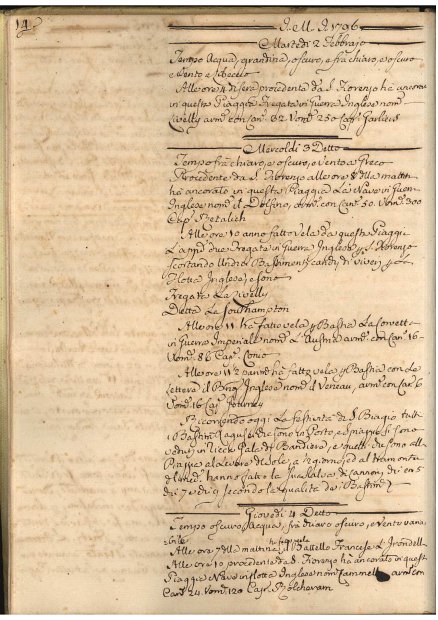 14.
A. M. D. 1796
Martedì 2 Febbrajo
Tempo Acqua, grandina, oscuro, e fra chiaro, e oscuro
e Vento e Libeccio
Alle ore 4 di sera procedente da S. Fiorenzo hà ancorato
in questa Piaggia Fregata in Guerra Inglese nom.
Livelly arm. con Can. 32 Vom. 250 Cap. Garlies
Mercoldì 3 Detto
Tempo frà chiaro, e oscuro, e Vento a Greco
Procedente da S. Fiorenzo alle ore 8 della mattina
hà ancorato in questa Piaggia La Nave in Guerra
Inglese nom. il Delfino, arm. con Can. 50. Vom. 300
Cap.
Alle ore 10 anno fatto vela da questa Piaggia
Le due Fregate in Guerra Inglesi p. S. Fiorenzo
scortando Undici Bastimenti carichi di viveri p. La
Flotta Inglese, e sono
Fregata La Livelly
Detta La Southampton
Alle ore 11 hà fatto vela p. Bastia La Corvetta
in Guerra Imperiale nom. L'Austria arm. con Can. 16
Vom. 86 Cap.
Alle ore 11½ hà fatto vela p. Bastia con La
Lettera il Brig Inglese nom. il arm. con Can. 6
Vom. 16 Cap.
Ricorrendo oggi La festività di S. Biagio tutti
i Bastim. Raguséi che sono in Porto, e Spiaggia si sono
veduti in Ricche Gale di Bandiere, e quelli che sono alla
Piaggia al Levare del Sole, a ½ giorno, ed al tramontar
del med. hanno fatto la sua Salva di Cannoni, chi en 5
chi 7, e chi 9 secondo la qualità de Bastim.
Giovedì 4 Detto
Tempo oscuro, Acqua, frà chiaro oscuro, e vento varia
bile
Alle ore 7 della mattina hà fatto vela il Battello Francese L'Irondell
Alle ore 10 procedente da S. Fiorenzo hà ancorato in questa
Piaggia Nave in flotta Inglese nom. Cammell arm. con
Can. 24 Vom. 120 Cap.